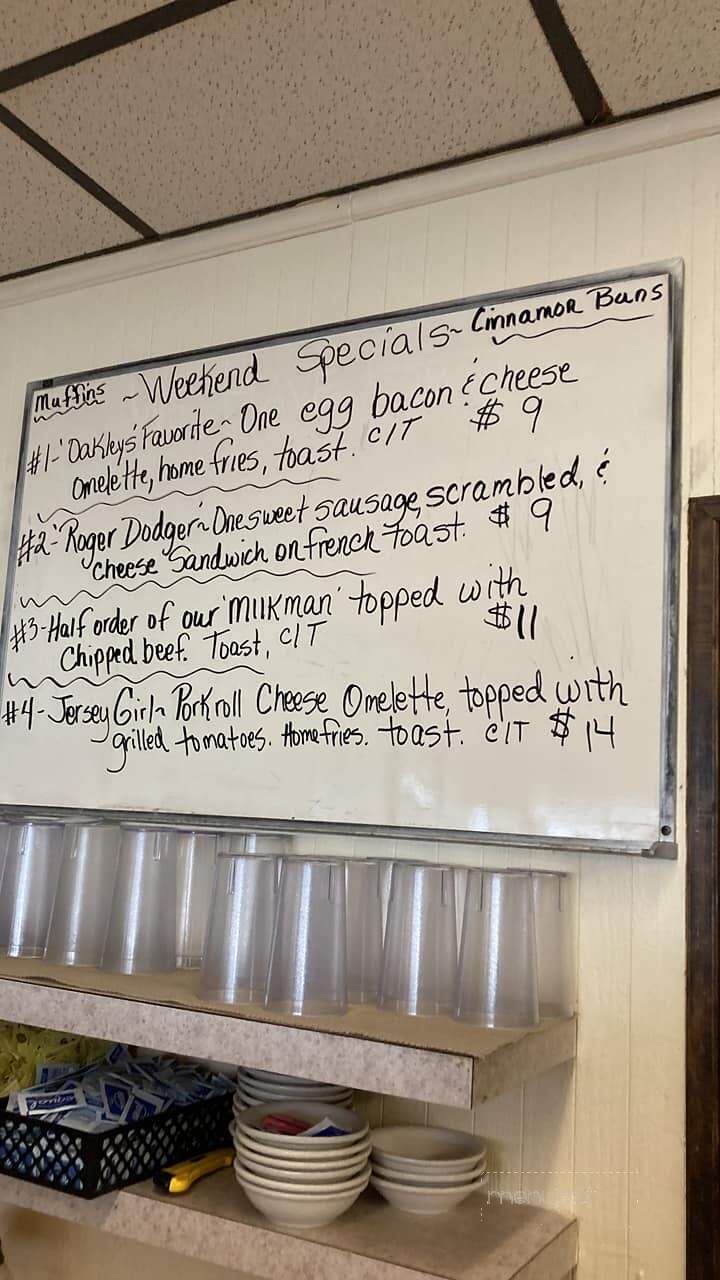 Muffins ~ Weekend Specials ~ Cinnamon Buns
#1-'Oakleys' Favorite ~ One egg bacon & cheese
Omelette, home fries, toast. C/T $9
#2-'Roger Dodger' ~ One sweet sausage, scrambled, &
Cheese Sandwich on french toast. $9
#3-Half order of our 'Milkman' topped with
Chipped beef. Toast, C/T $11
#4-Jersey Girl ~ Pork roll Cheese Omelette, topped with
grilled tomatoes. Home fries. toast. C/T $14
equal